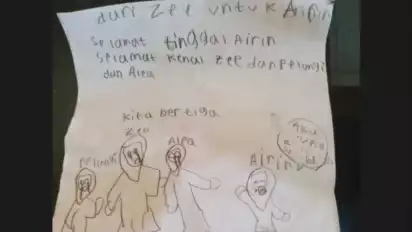 dari zee untuk Airin
Selamat tinggal Airin
Selamat kenal zee dan Pelangi
dan Alea
kita bertiga
zee
Alea
Airin
Aku